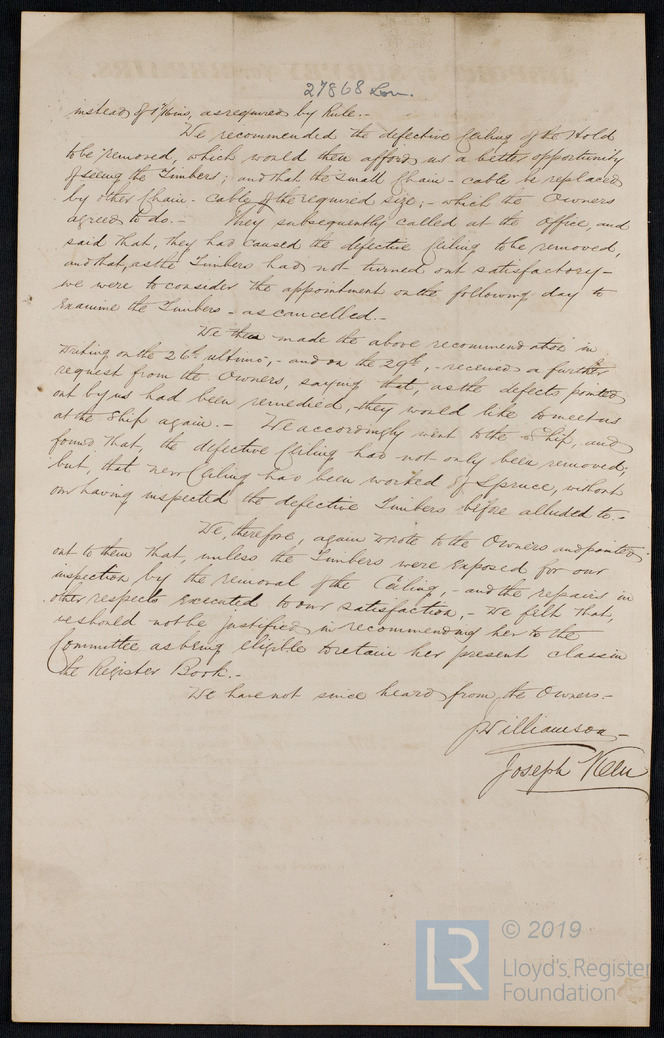 27868 Lon.
instead of 1 7/16 ins, as required by Rule.-
We recommended the defective Ceiling of the Hold
to be removed, which would then afford us a better opportunity
of seeing the Timbers; and that the small Chain-cable be replaced
by other Chain-Cable of the required size,- which the Owners
agreed to do.- They subsequently called at the Office, and
said that, they had caused the defective Ceiling to be removed,
and that, as the Timbers had not turned out satisfactory-
we were to consider the appointment on the following day to
Examine the Timbers - as cancelled.-
We then made the above recommendation in
writing on the 26th ultimo,- and on the 29th,- received a further
request from the Owners, saying that, as the defects pointed
out by us had been remedied, they would like to meet us
at the Ship again.- We accordingly went to the Ship, and
found that, the defective Ceiling had not only been removed;
but, that new Ceiling had been worked of Spruce, without
our having inspected the defective Timbers before alluded to.-
We, therefore, again wrote to the Owners and pointed
out to them that, unless the Timbers were Exposed for our
inspection by the removal of the Ceiling,- and the repairs in
other respects Executed to our satisfaction,- we felt that,
we should not be justified in recommending her to the
Committee as being eligible to retain her present class in
the Register Book.-
We have not since heard from the Owners.-
J Williamson
Joseph Keen
LR
© 2019
Lloyd's Register
Foundation